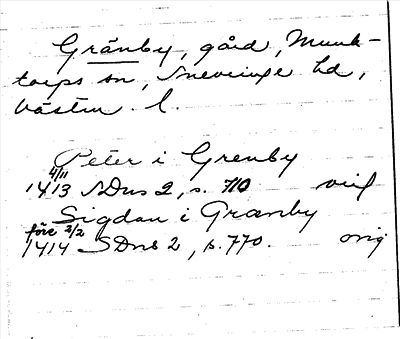 Gränby, gård, Munk-
torps sn, Snevringe hd,
Västm. l.
Peter i Grenby
4/11
1413 SDns 2, s. 710
Sigdan i Granby
före 2/2
1414 SDns 2, s. 770. orig